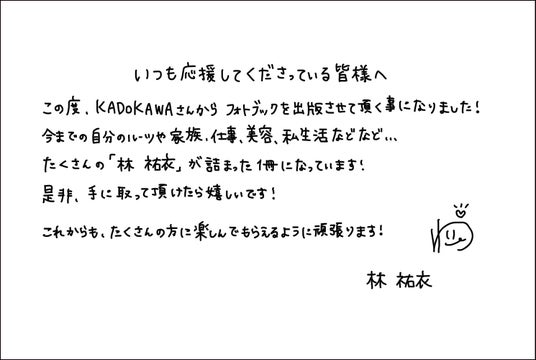 いつも応援してくださっている皆様へ
この度、KADOKAWAさんから フォトブックを出版させて頂く事になりました！
今までの自分のルーツや家族、仕事、美容、私生活などなど…
たくさんの「林 祐衣」が詰まった1冊になっています！
是非、手に取って頂けたら嬉しいです！
これからも、たくさんの方に楽しんでもらえるように頑張ります！
林 祐衣